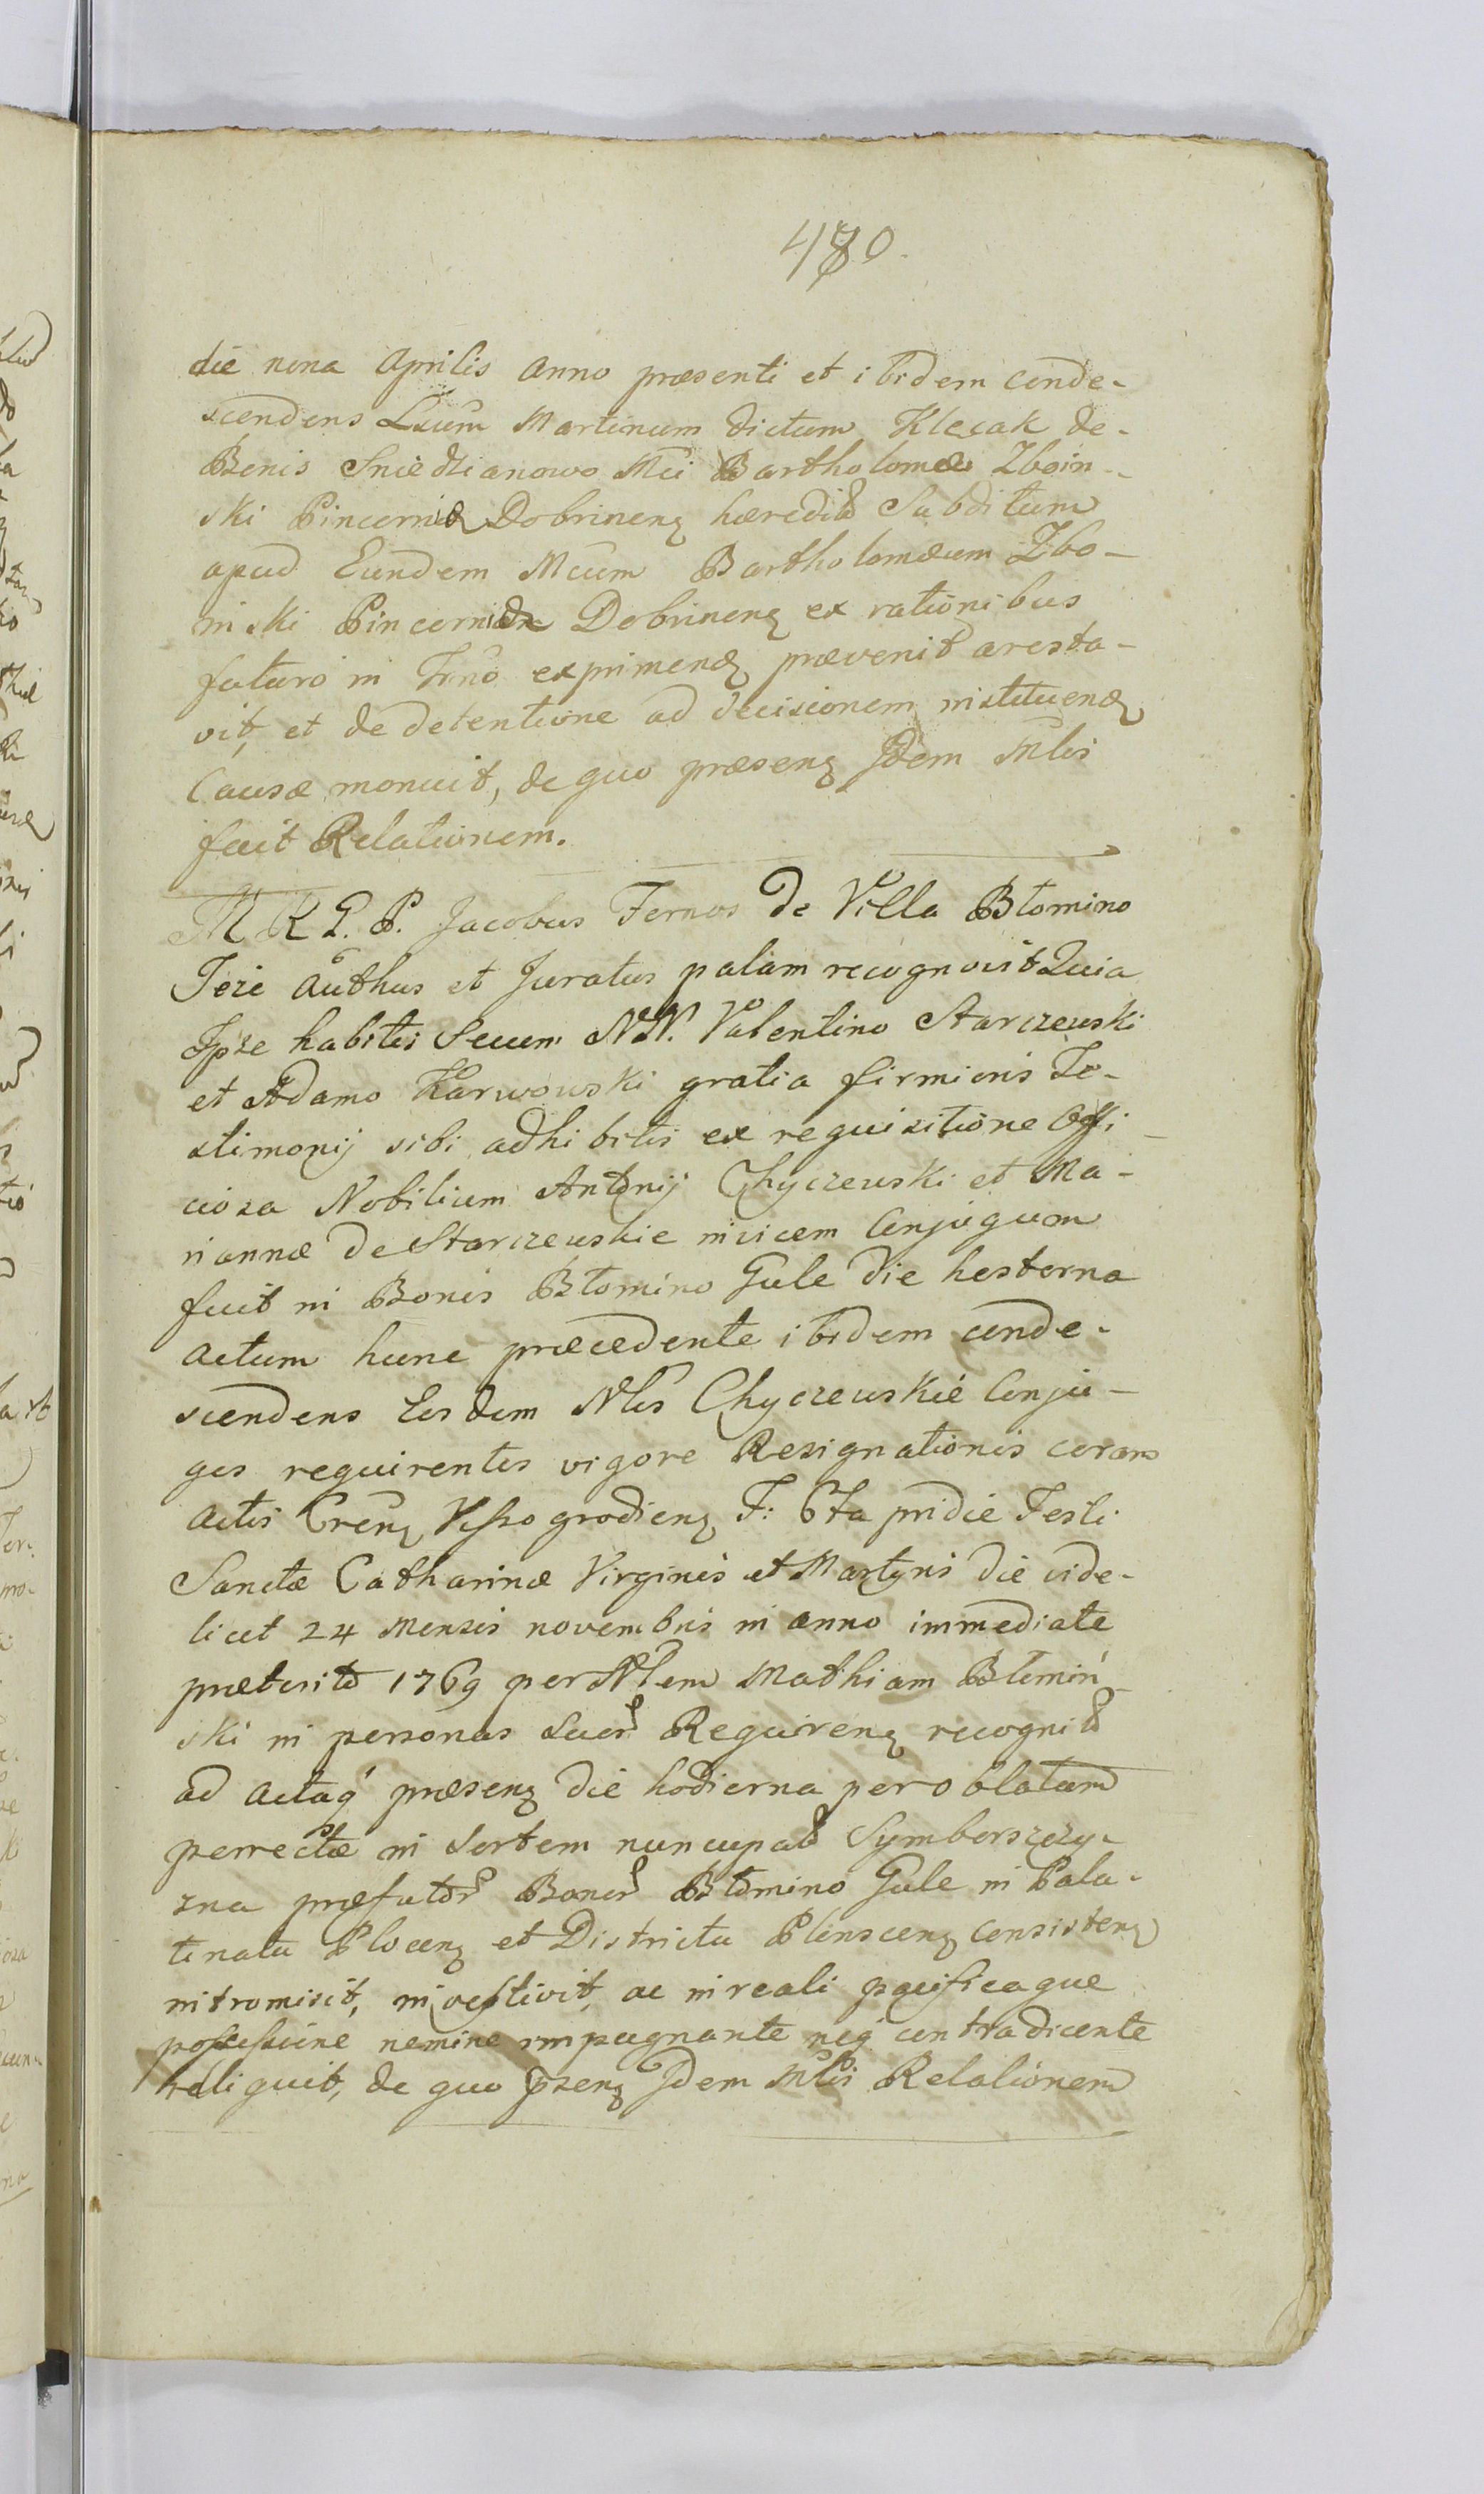 480.
die nona Aprilis anno præsenti et ibidem conde-
scendens Lxum Martinum dictum Klęcak de-
Bonis Sniedzianowo Mci Bartholomæi Zboin-
ski Pincerniæ Dobrinenę hæredit Subditum
apud Eundem Mcum Bartholomæum Zbo-
inski Pincernidæ Dobrinenę ex rationibus
futuro in Trno exprimendę prævenit aresta-
vit, et de detentione ad decisionem instituendę
Causæ monuit, de quo præsenę Idem Mlis
fecit Relationem.
M R G. P. Jacobus Fernos de Villa Błomino
Jeże authus et Juratus palam recognovit Quia
Ipse habitis Secum NN. Valentino Starczewski
et Adamo Karwowski gratia firmioris Te-
stimonij sibi adhibitis ex requisitione Offi-
ciosa Nobilium Antonij Chyczewski et Ma-
riannæ de Starczewskie invicem Conjugum
fuit in Bonis Błomino Gule die hesterna
actum hunc præcedente ibidem conde-
scendens Eosdem Nles Chyczewskie Conju-
ges requirentes vigore Resignationis coram
Actis Crenę Vissogrodienę F: 6ta pridie Festi
Sanctæ Catharinæ Virginis et Martyris die vide-
licet 24 Mensis novembris in anno immediate
præterito 1769 per Nlem Mathiam Błomiń-
ski in personas Suor Requirenę recognit
ad Actaq præsenę die hodierna per oblatam
perrectæ in Sortem nuncupat Symborszczy-
zna præfator Bonor Błomino Gule in Pala-
tinatu Płocenę et District​u Plonscenę consistenę
intromisit, investivit, ac in reali pacificaque
possessione nemine impugnante neq contradicente
reliquit, de quo Pzenę Idem Mlis Relationem